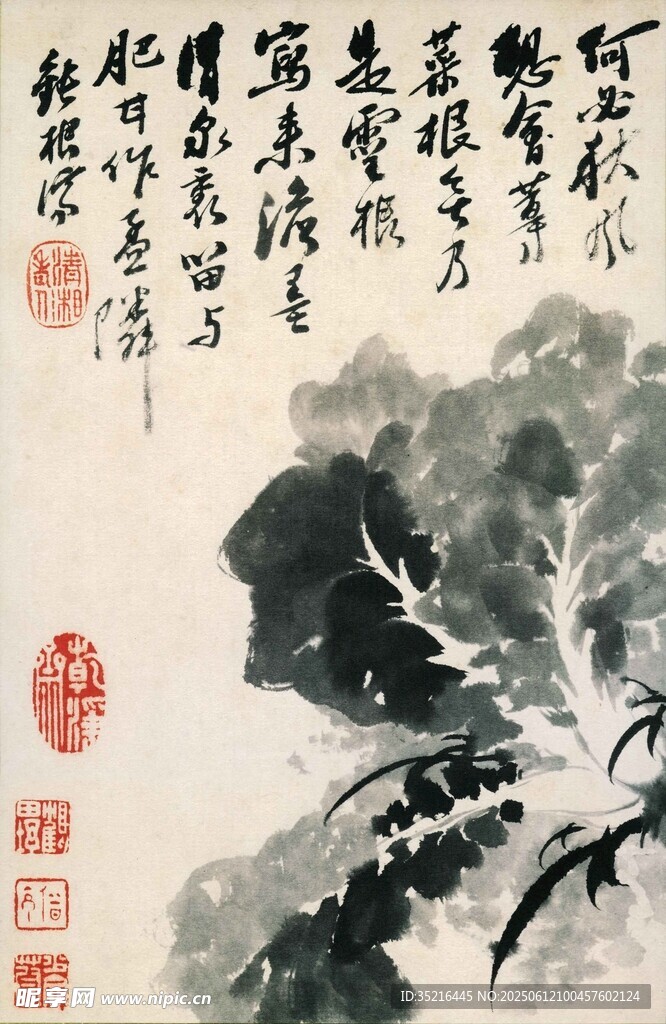 何必秋风
想會蓴
菜根无乃
是靈根
寫来澹墨
清泉裏留与
肥甘作孟隣
鈍根濟
清湘老人
昵享网 www.nipic.cn
ID:35216445 NO:20250612100457602124